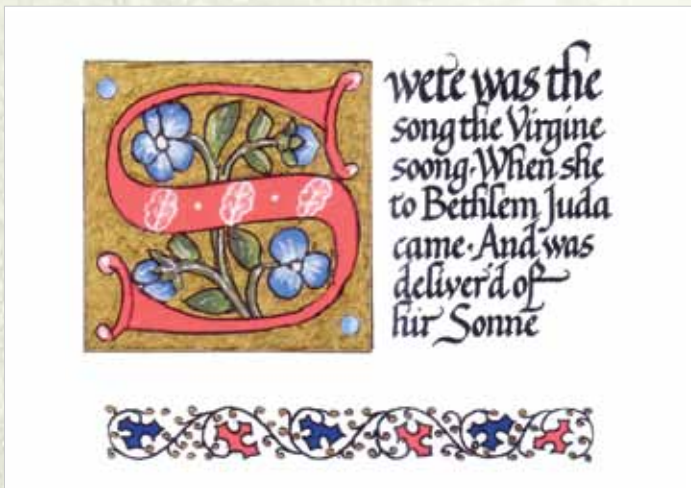 Swete was the
song the Virgine
soong·When she
to Bethlem Juda
came·And was
deliver'd of
hir Sonne